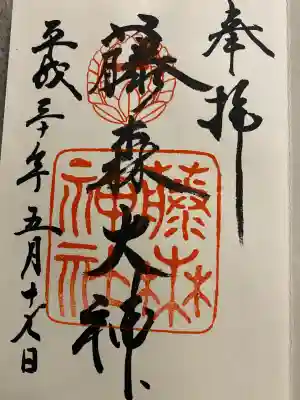 奉拝
藤森大神
平成三十年五月十七日
藤森
神社